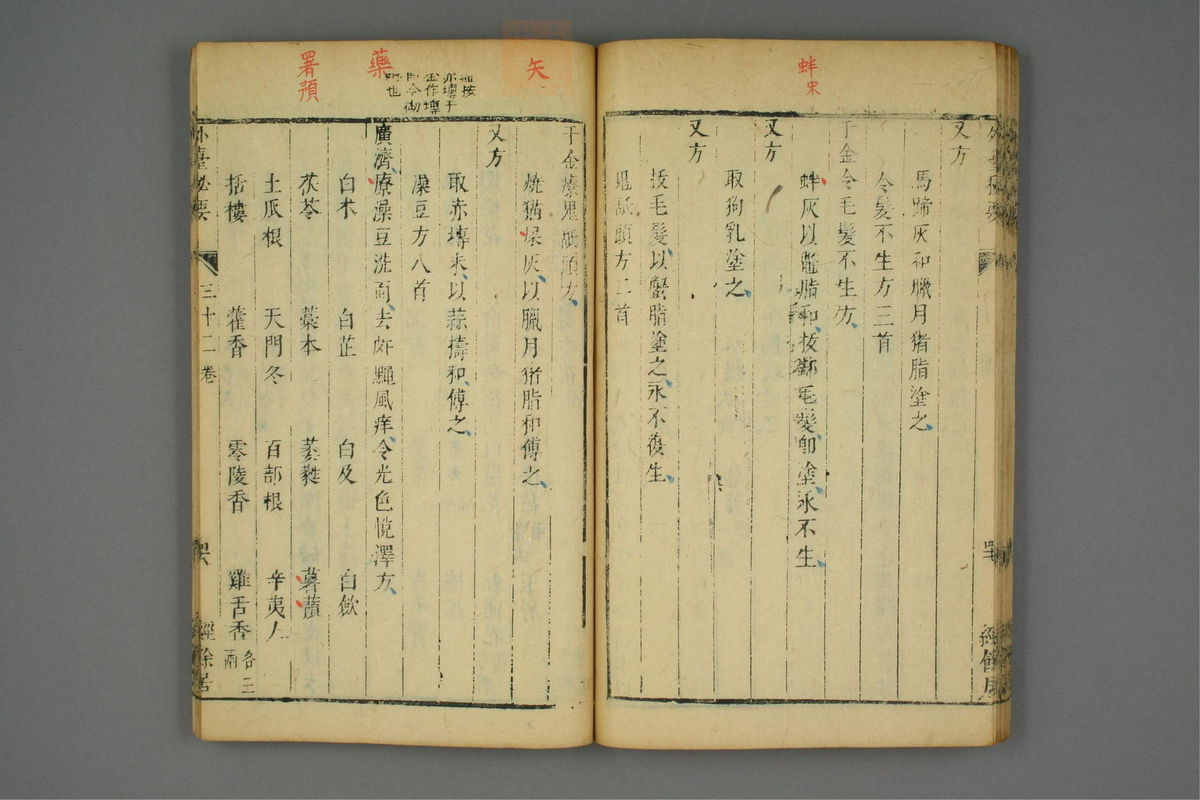 蚌宋
又方
馬蹄灰和臘月猪脂塗之
令髮不生方三首
千金令毛髮不生方
蚌灰以鱉脂和拔却毛髮即塗永不生
又方
取狗乳塗之
又方
拔毛髮以蟹脂塗之永不復生
鬼舐頭方二首
矢
藥
署預
千金療鬼舐頭方
燒猫屎灰以臘月猪脂和傅之
又方
取赤塼末以蒜擣和傅之
澡豆方八首
廣濟療澡豆洗面去皯䵳風痒令光色悅澤方
白术 白芷 白及 白歛
茯苓 藁本 萎蕤 薯蕷
土瓜根 天門冬 百部根 辛夷人
栝樓 藿香 零陵香 雞舌香各三兩
外臺秘要 三十二卷 經餘居